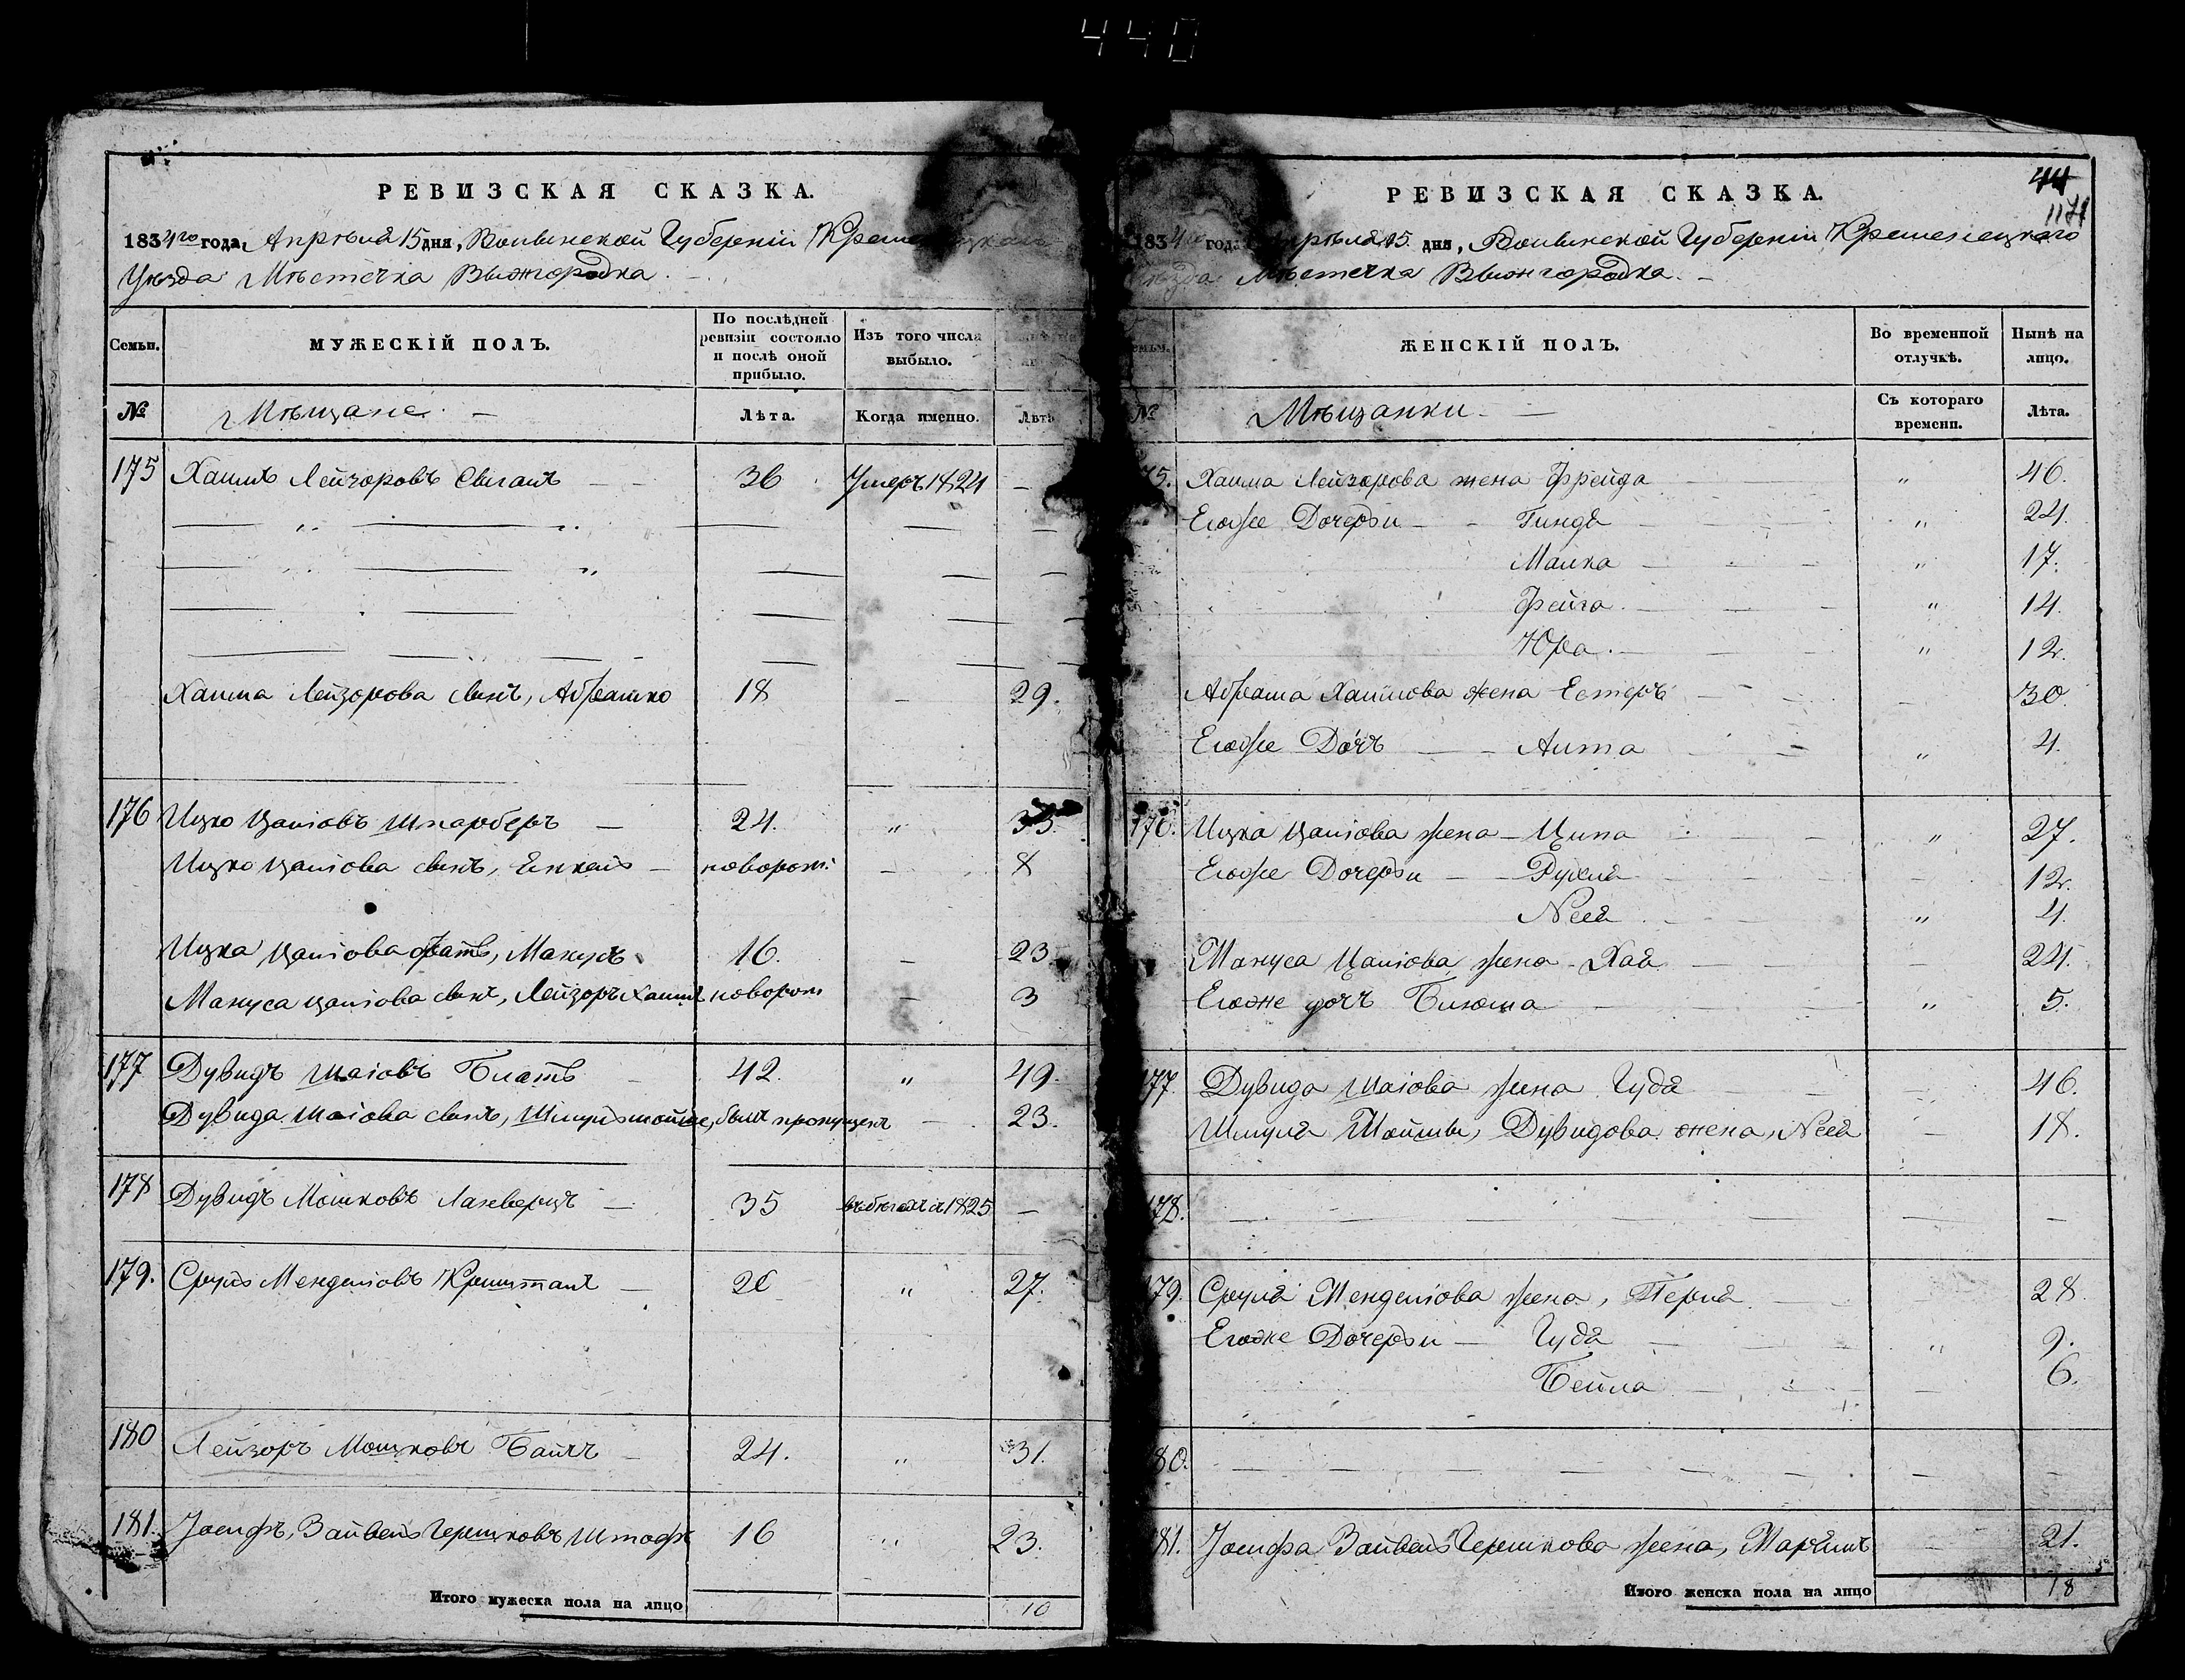 440
РЕВИЗСКАЯ СКАЗКА.
1834го года, Апрѣля 15 дня, Волынской Губерніи
Уѣзда Мѣстечка Выжгородка.
Семьи. МУЖЕСКІЙ ПОЛЪ. По послѣдней ревизіи состояло и послѣ оной прибыло. Изъ того числа выбыло.
№ Мѣщане. Лѣта. Когда именно. Лѣта
175 Хаимъ Лейзоровъ 36 Умеръ 1824 —
Хаима Лейзорова сынъ, Абрашко 18 — 29.
176 Ицко Цаліовъ Шпарберъ — 24. „ 33.
Ицко Цаліова сынъ, Енкель — новорож: — 8
Ицка Цаліова братъ, Манусъ 16. — 23.
Мануса Цаліова сынъ, Лейзоръ Хаимъ новорож — 3
177 Дувидъ Шаіовъ Блатъ — 42. „ 49.
Дувида Шаіова сынъ, Шмуль Мойше, былъ пропущенъ — 23.
178 Дувидъ Мошковъ — 35 въ бѣгахъ съ 1825 —
179. Сруль Менделіовъ Криштал — 20 „ 27.
180 Лейзоръ Мошковъ — 24. „ 31.
181. Іосифъ, Зайвель Гершковъ Штофъ 16 „ 23.
Итого мужеска пола на лицо 10
РЕВИЗСКАЯ СКАЗКА.
44
1834го года Апрѣля 15. дня, Волынской Губерніи Кременецкаго
Уѣзда Мѣстечка Выжгородка. —
ЖЕНСКІЙ ПОЛЪ. Во временной отлучкѣ. Нынѣ на лицо.
№ Мѣщанки. — Съ котораго времени. Лѣта.
175. Хаима Лейзорова жена Фрейда „ 46.
Егоже Дочери — Гиндя „ 24.
Малка „ 17.
Фейга „ 14.
Юра „ 12.
Абраша Хаимова жена Естеръ — 30.
Егоже Дочь — Аита „ 4.
176. Ицка Цаліова жена — Ципа „ 27.
Егоже Дочери — Рухля — 12.
Неся „ 4.
Мануса Цаліова жена — Хая — 24.
Егоже дочь Блюма „ 5.
177 Дувида Шаіова жена Гудя — 46.
Шмуля Мойши, Дувидова жена, Неся — 18.
178. — — —
179. Сруля Менделіова жена, Перля — 28
Егоже Дочери — Гудя „ 9.
Бейла — 6.
180. — — —
181. Іосифа Зайвель Гершкова жена, Маріамъ — 21.
Итого женска пола на лицо 18